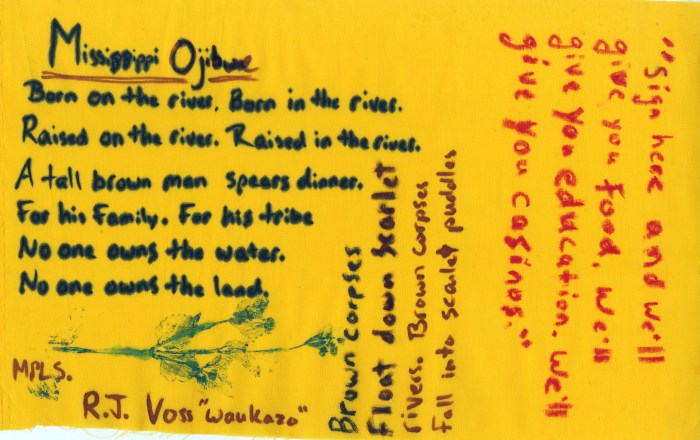 Mississippi Ojibwe
Born on the river. Born in the river.
Raised on the river. Raised in the river.
A tall brown man spears dinner.
For his family. For his tribe
No one owns the water.
No one owns the land.
MPLS.
R.J. Voss "Waukazo"
Brown corpses
Float down scarlet
rivers. Brown corpses
fall into scarlet puddles
"Sign here and we'll
give you food, we'll
give you education. we'll
give you casinos."